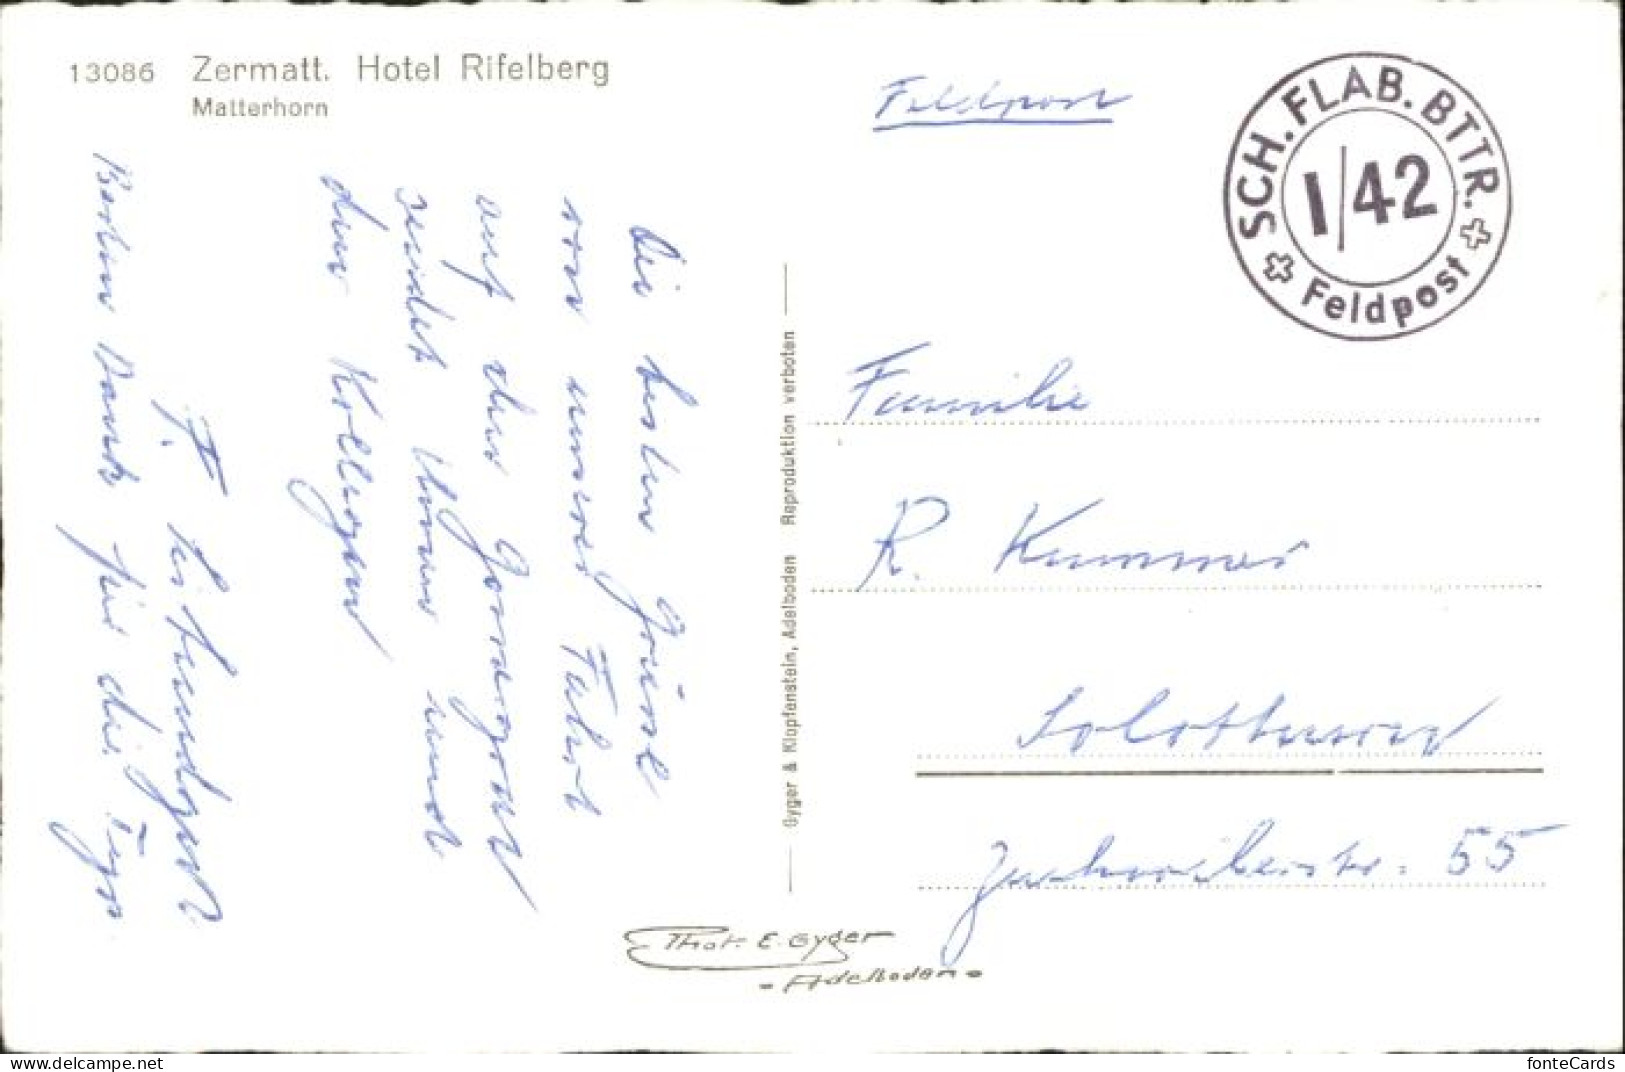 13086 Zermatt. Hotel Rifelberg
Matterhorn
Die besten Grüsse
von unserer Fahrt
auf den Gornergrat
sendet Ihnen und
den Kollegen
F.
Besten Dank für die
Gyger & Klopfenstein, Adelboden Reproduktion verboten
Phot. E. Gyger
- Adelboden -
Feldpost
SCH. FLAB. BTTR.
I/42
Feldpost
Familie
R. Kummer
Solothurn
55
www.delcampe.net
fonteCards